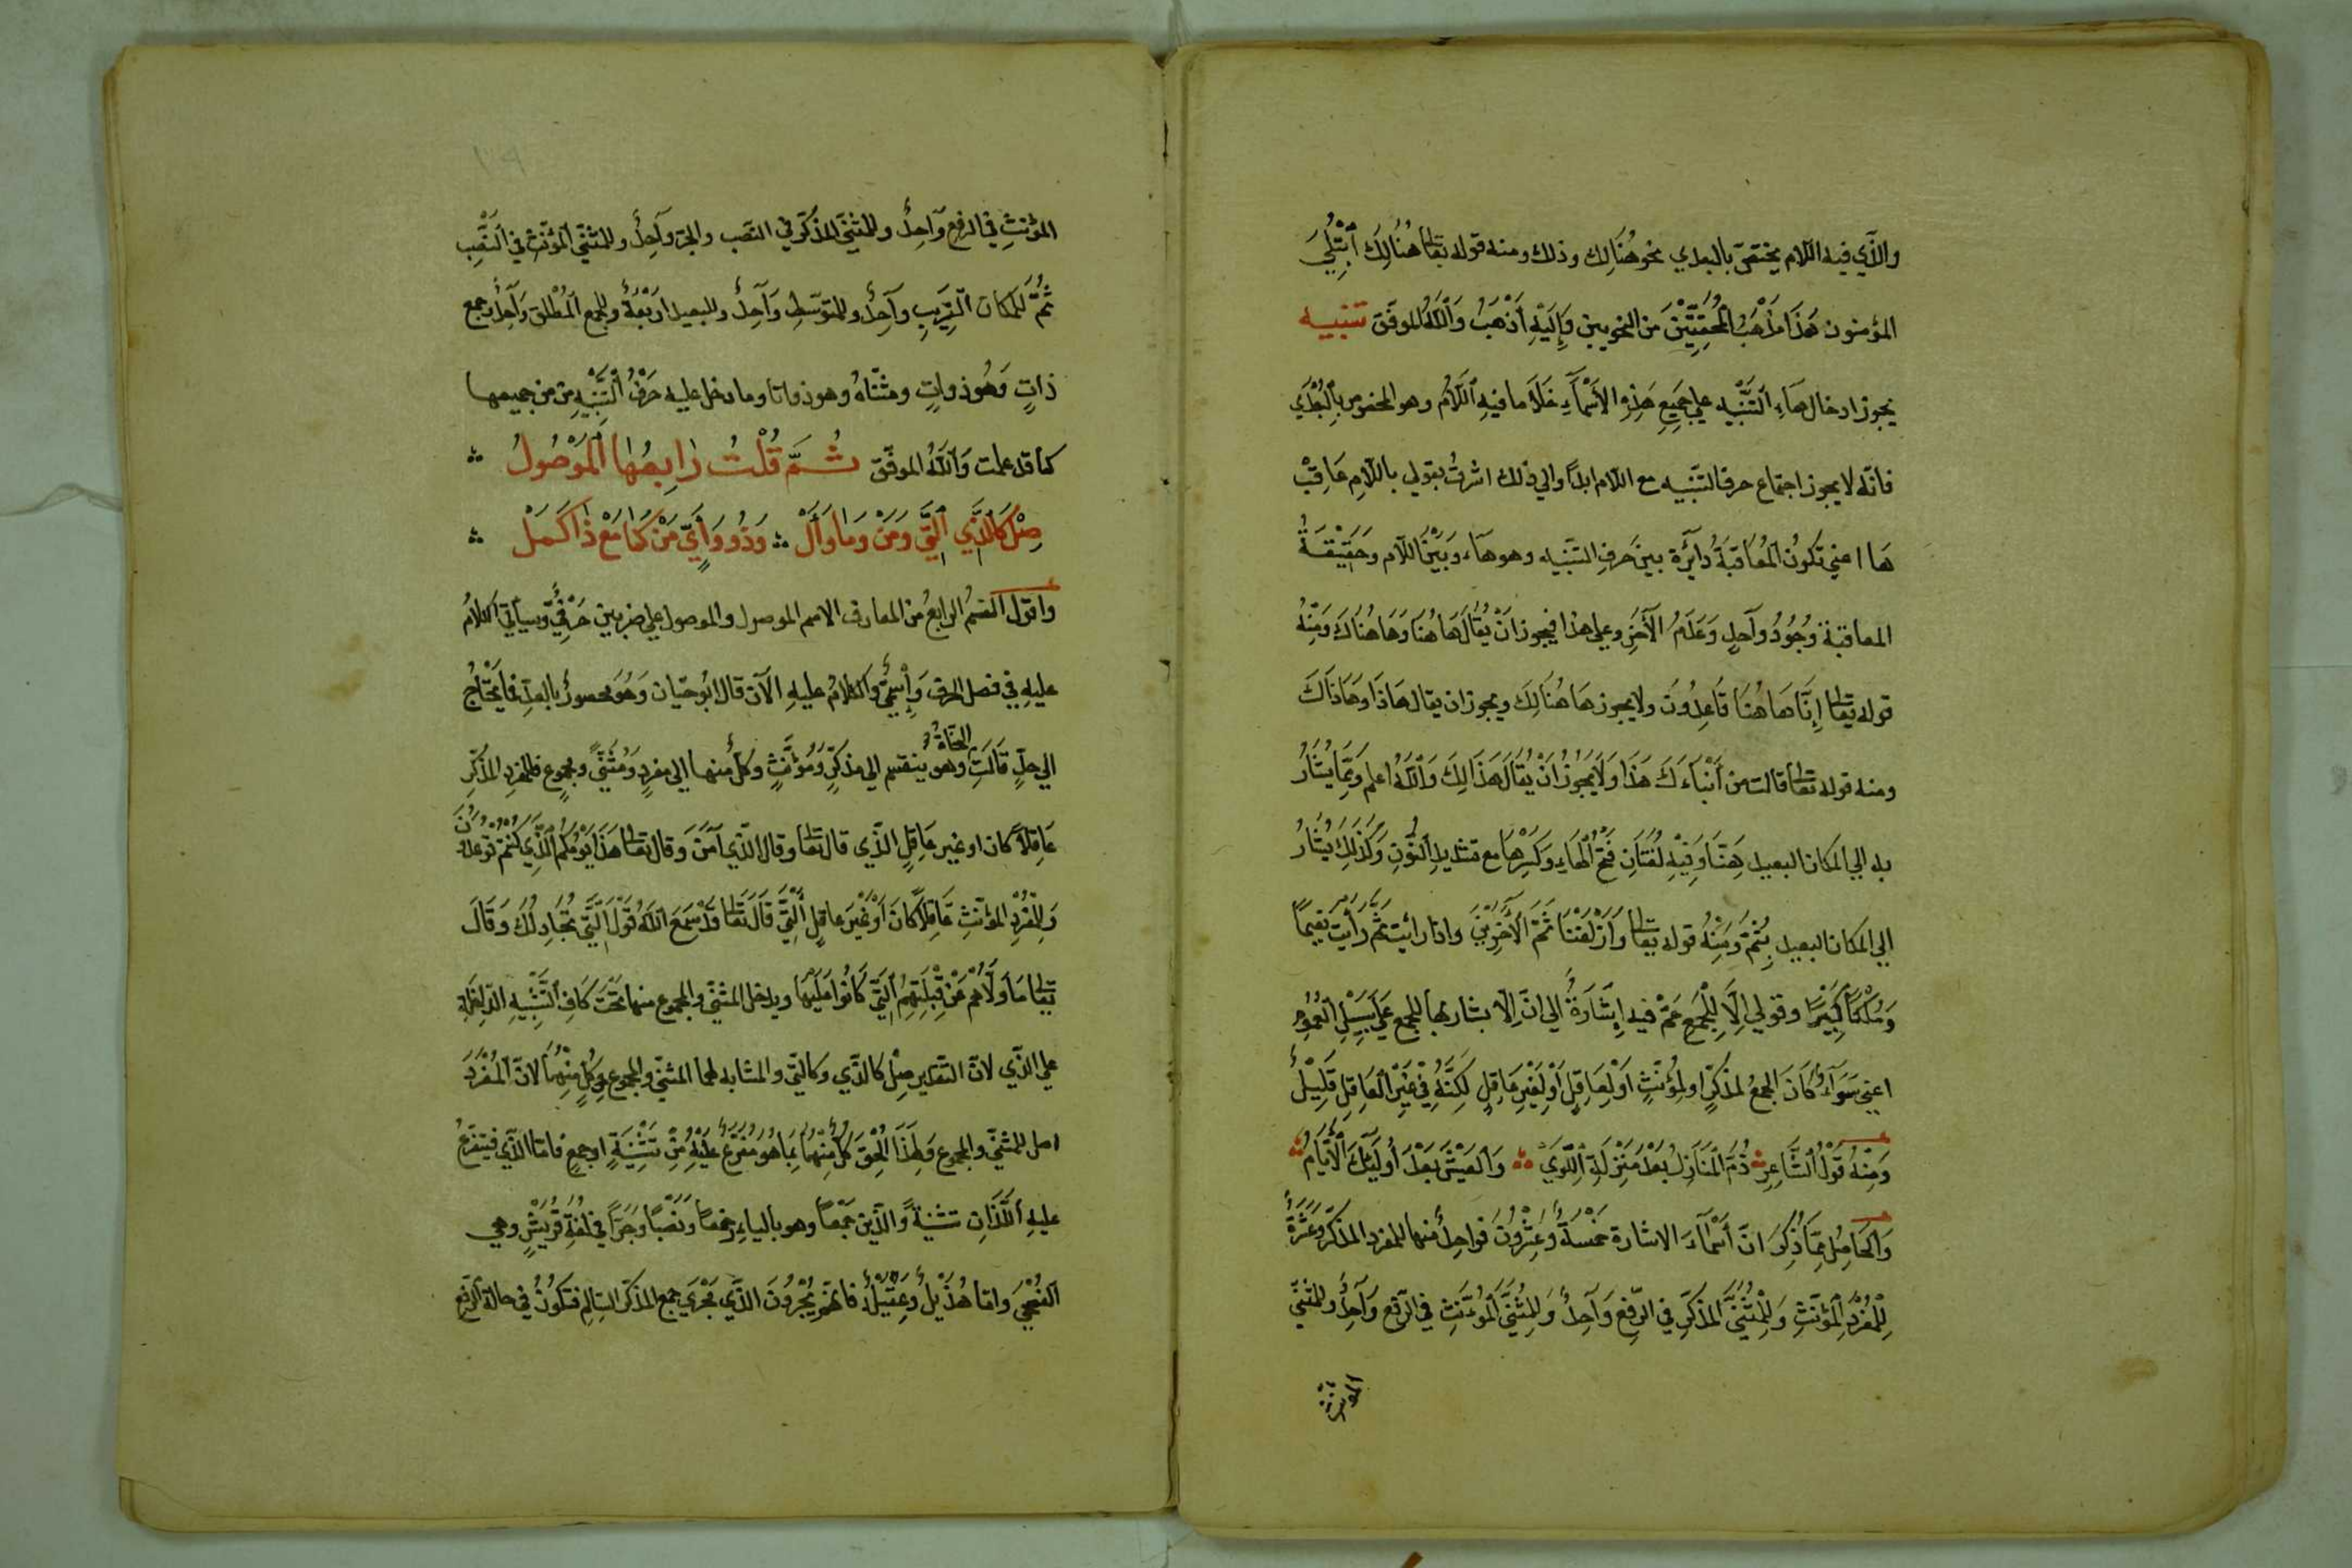 والذي فيه اللام يختص بالبعدي نحو هُنَالِك وذلك ومنه قوله تعالى هُنَالِكَ ٱبْتُلِيَ
المؤمنون هَذَا مَذْهَبُ ٱلْمُحَقِّقِيْنَ من النحويين وَإِلَيْهِ أَذْهَبُ وَٱللَّهُ الموفّق تنبيه
يجوز ادخال هَاءِ ٱلتَّنْبِيهِ على جَمِيعِ هَذِهِ الأَسْمَآءِ خَلَا ما فيهِ ٱللَّامُ وهو المخصوص بِٱلْبُعْدَي
فانّه لا يجوز اجتماع حرف التنبيه مع اللام ابدًا والي ذلك اشرتُ بقولي باللامِ عَاقِبْ
هَا اعنِي تكونُ ٱلْمُعَاقَبَةُ دَائِرَة بينَ حَرفِ التنبيه وهو هآء وَبَيْنَ اللآم وحَقِيْقَةُ
المعاقبة وُجُودُ وآحدٍ وَعَدَمُ الآخَرِ وعلى هذا فيجوز انْ يُقَالَ هَا هُنَا وَهَا هُنَاكَ وَمِنْهُ
قوله تعالى إِنَّا هَا هُنَا قَاعِدُونَ ولا يجوز هَا هُنَالِكَ ويجوز ان يقال هَاذَا وهَاذَاكَ
ومنه قوله تعالى قالت من أَنْبَاءَكَ هَذَا وَلَا يَجُوزُ اَنْ يُقَالَ هَذَالِكَ وَٱللَّهُ اعلم وَمِمَّا يُشَارُ
به الي المكان البعيد هَِنَّا وَفِيْهِ لُغَتَانِ فَتْحُ ٱلْهَاءِ وَكَسْرُهَا مع تشديدِ ٱلنُّونِ وَكَذَلِكَ يُشَارُ
الي المكان البعيد بِثَمَّ وَمِنْهُ قوله تعالى وَأَزْلَفْنَا ثَمَّ الْآخَرِيْنَ واذا رائيت ثَمَّ رَأَيْتَ نَعِيمًا
وَمُلْكًا كَبِيْرًا وقولي الْأَلِلْجَمْعِ عَمّ فيه إِشَارَةٌ الي انّ الآ يشار بها للجمع عَلَى سَبِيْلِ العُمُومِ
اعني سَوَآءٌ كَانَ الجمعُ لمذكّرٍ او لِمُؤنّثٍ اَوْ لِعَاقِلٍ أَوْ لِغَيْرِ عَاقِلٍ لَكِنَّهُ فِي غَيْرِ ٱلْعَاقِلِ قَلِيْلٌ
وَمِنْهُ قَوْلُ ٱلشَّاعِرِ ذُمَّ الْمَنَازِلَ بَعْدَ مَنْزِلَةِ ٱللِّوَيْ وَالعَيْشَ بَعْدَ أُولَئِكَ ٱلْأَيَّامِ
وَٱلْحَاصِلُ مِمَّا ذُكِرَ انّ أَسْمَآءَ الاشارة خَمْسَةٌ وَعِشْرُونَ فواحِدٌ منها للمفرد المذكّر وعَشْرَةٌ
لِلْمُفْرَدِ ٱلْمُؤَنَّثِ وَلِلْمُثَنَّى المذكّرِ في الرّفعِ وَآحِدٌ وَلِلْمُثَنَّى ٱلْمُؤنَّثِ في الرّفع وَآحِدٌ وللمثنّى
المؤنث
المؤنثِ في الرفعِ وَآحِدٌ وللمثنّى المذكّر في النّصب والجرّ وآحِدٌ وللمثنّى المُؤنّث في ٱلنَّصْبِ
ثُمَّ لِلْمَكَان ٱلقَرِيبِ وآحِدٌ وللمتوسّطِ وَآحِدٌ وللبعيد أرَبْعَةٌ وللجمع المُطْلق وَآحِدٌ وجمع
ذاتٍ وَهُو ذوات ومثنّاهُ وهو ذواتا وما دخل عليه حَرْفُ التَّنْبِيْهِ من من جميعها
كما قد علمت وَاللَّهُ الموفّق ثُمَّ قُلْتُ رَابِعُهَا ٱلْمَوْصُولُ
صِلْ كَالَّذِي ٱلَّتِي وَمَنْ وَمَا وَأَلْ وَذُو وَأَيٍّ مَنْ كَمَا مَعْ ذَا كَمَلْ
واقول القسم الرابعُ من المعارف الاسم الموصول والموصول علي ضربين حَرْفِيٌّ وسيأتي الكلامُ
عليهِ في فصل الحرف وَإِسْمِيٌّ والكلامُ عليهِ الآن قال ابُو حيّان وَهُوَ محصورٌ بالعدّ فلا يَحْتَاج
الي حدٍّ قَالَتِ النحاةُ وهو ينقسم الي مذكّرٍ وَمُؤَنَّثٍ وكلٌّ منهما الي مفردٍ وَمُثَنًّى ومجموعٍ فللمفردِ المذكّرِ
عَاقِلًا كان او غير عَاقِلٍ الّذِي قال تعالى وقال الّذي آمَنَ وَقال تعالى هَذَا يَوْمُكُمُ ٱلَّذِي كُنْتُمْ تُوْعَدُونَ
وَلِلْمُفْرَدِ المؤنّثِ عَاقِلًا كَانَ اَوْ غَيْرَ عَاقِلٍ ٱلَّتِي قَالَ تَعَالى قَدْ سَمِعَ ٱللَّهُ قَوْلَ ٱلَّتِي تُجَادِلُكَ وَقَالَ
تعالى مَا وَلَّاهُمْ عَنْ قِبْلَتِهِمُ ٱلَّتِي كَانُوا عَلَيْهَا ويدخل المثنّى والمجموع منهما تَحْتَ كَافِ ٱلتَّشْبِيهِ
علي الذّي لانّ التقدير صِلْ كالذّي وكالتّي والمشابه لهما المثنّي والمجموع مِن كُلٍّ مِنْهُمَا لانّ ٱلْمُفْرَدَ
اصل للمثنّي والمجموع وَلِهَذَا أُلْحِقَ كُلٌّ مِنْهُمَا بِمَا هُوَ مُفَرَّعٌ عَلَيْهِ مِنْ تَثْنِيَةٍ او جمعٍ فامّا الّذي فيتفرّعُ
عليهِ ٱللَّذَانِ تثنيةً وَالّذين جَمْعًا وهو بالياءِ رفعًا وَنَصْبًا وَجَرًّا في لُغَةِ قُرَيْشٍ وهي
الفُصْحَى وامّا هُذَيْلٌ وَعُقَيْلٌ فانهم يُجْرُونَ الّذي مَجْرَي جمع المذكّر السّالِم فتكُونُ في حالة الرّفعِ